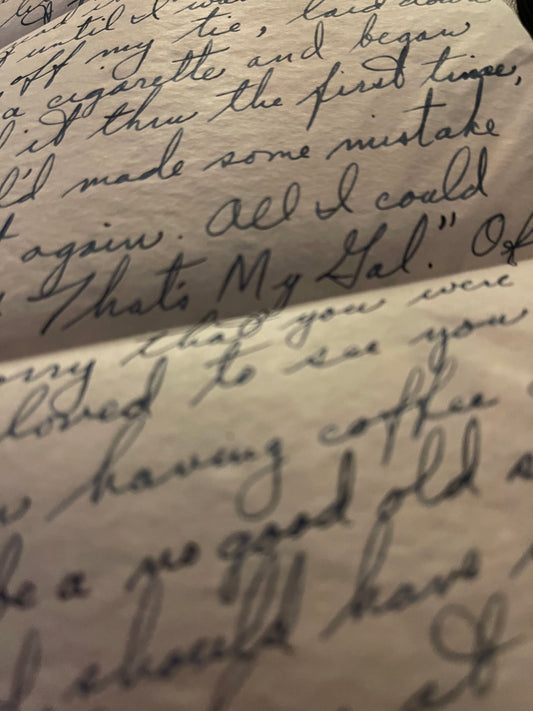 until I
off my tie, laid down
a cigarette and began
it thru the first time,
I'd made some mistake
again. All I could
"That's My Gal." Of
sorry that you were
loved to see you
having coffee
be a no good old
should have
at